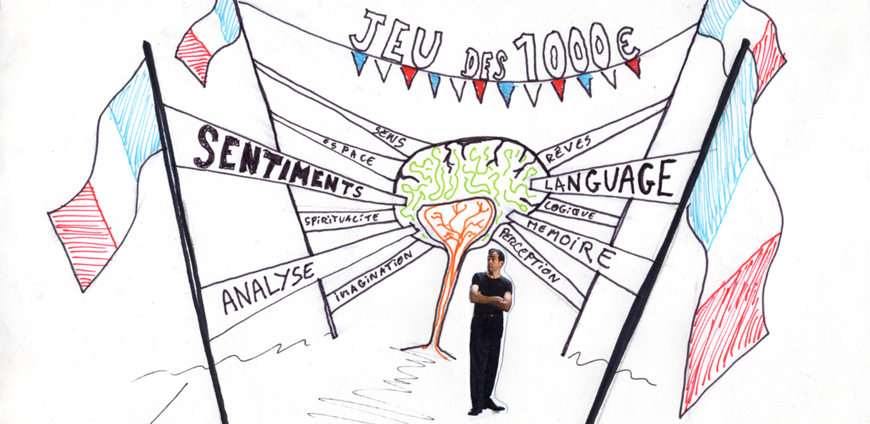 JEU DES 1000€
SENS
ESPACE
SENTIMENTS
SPIRITUALITÉ
ANALYSE
IMAGINATION
RÊVES
LANGUAGE
LOGIQUE
MEMOIRE
PERCEPTION